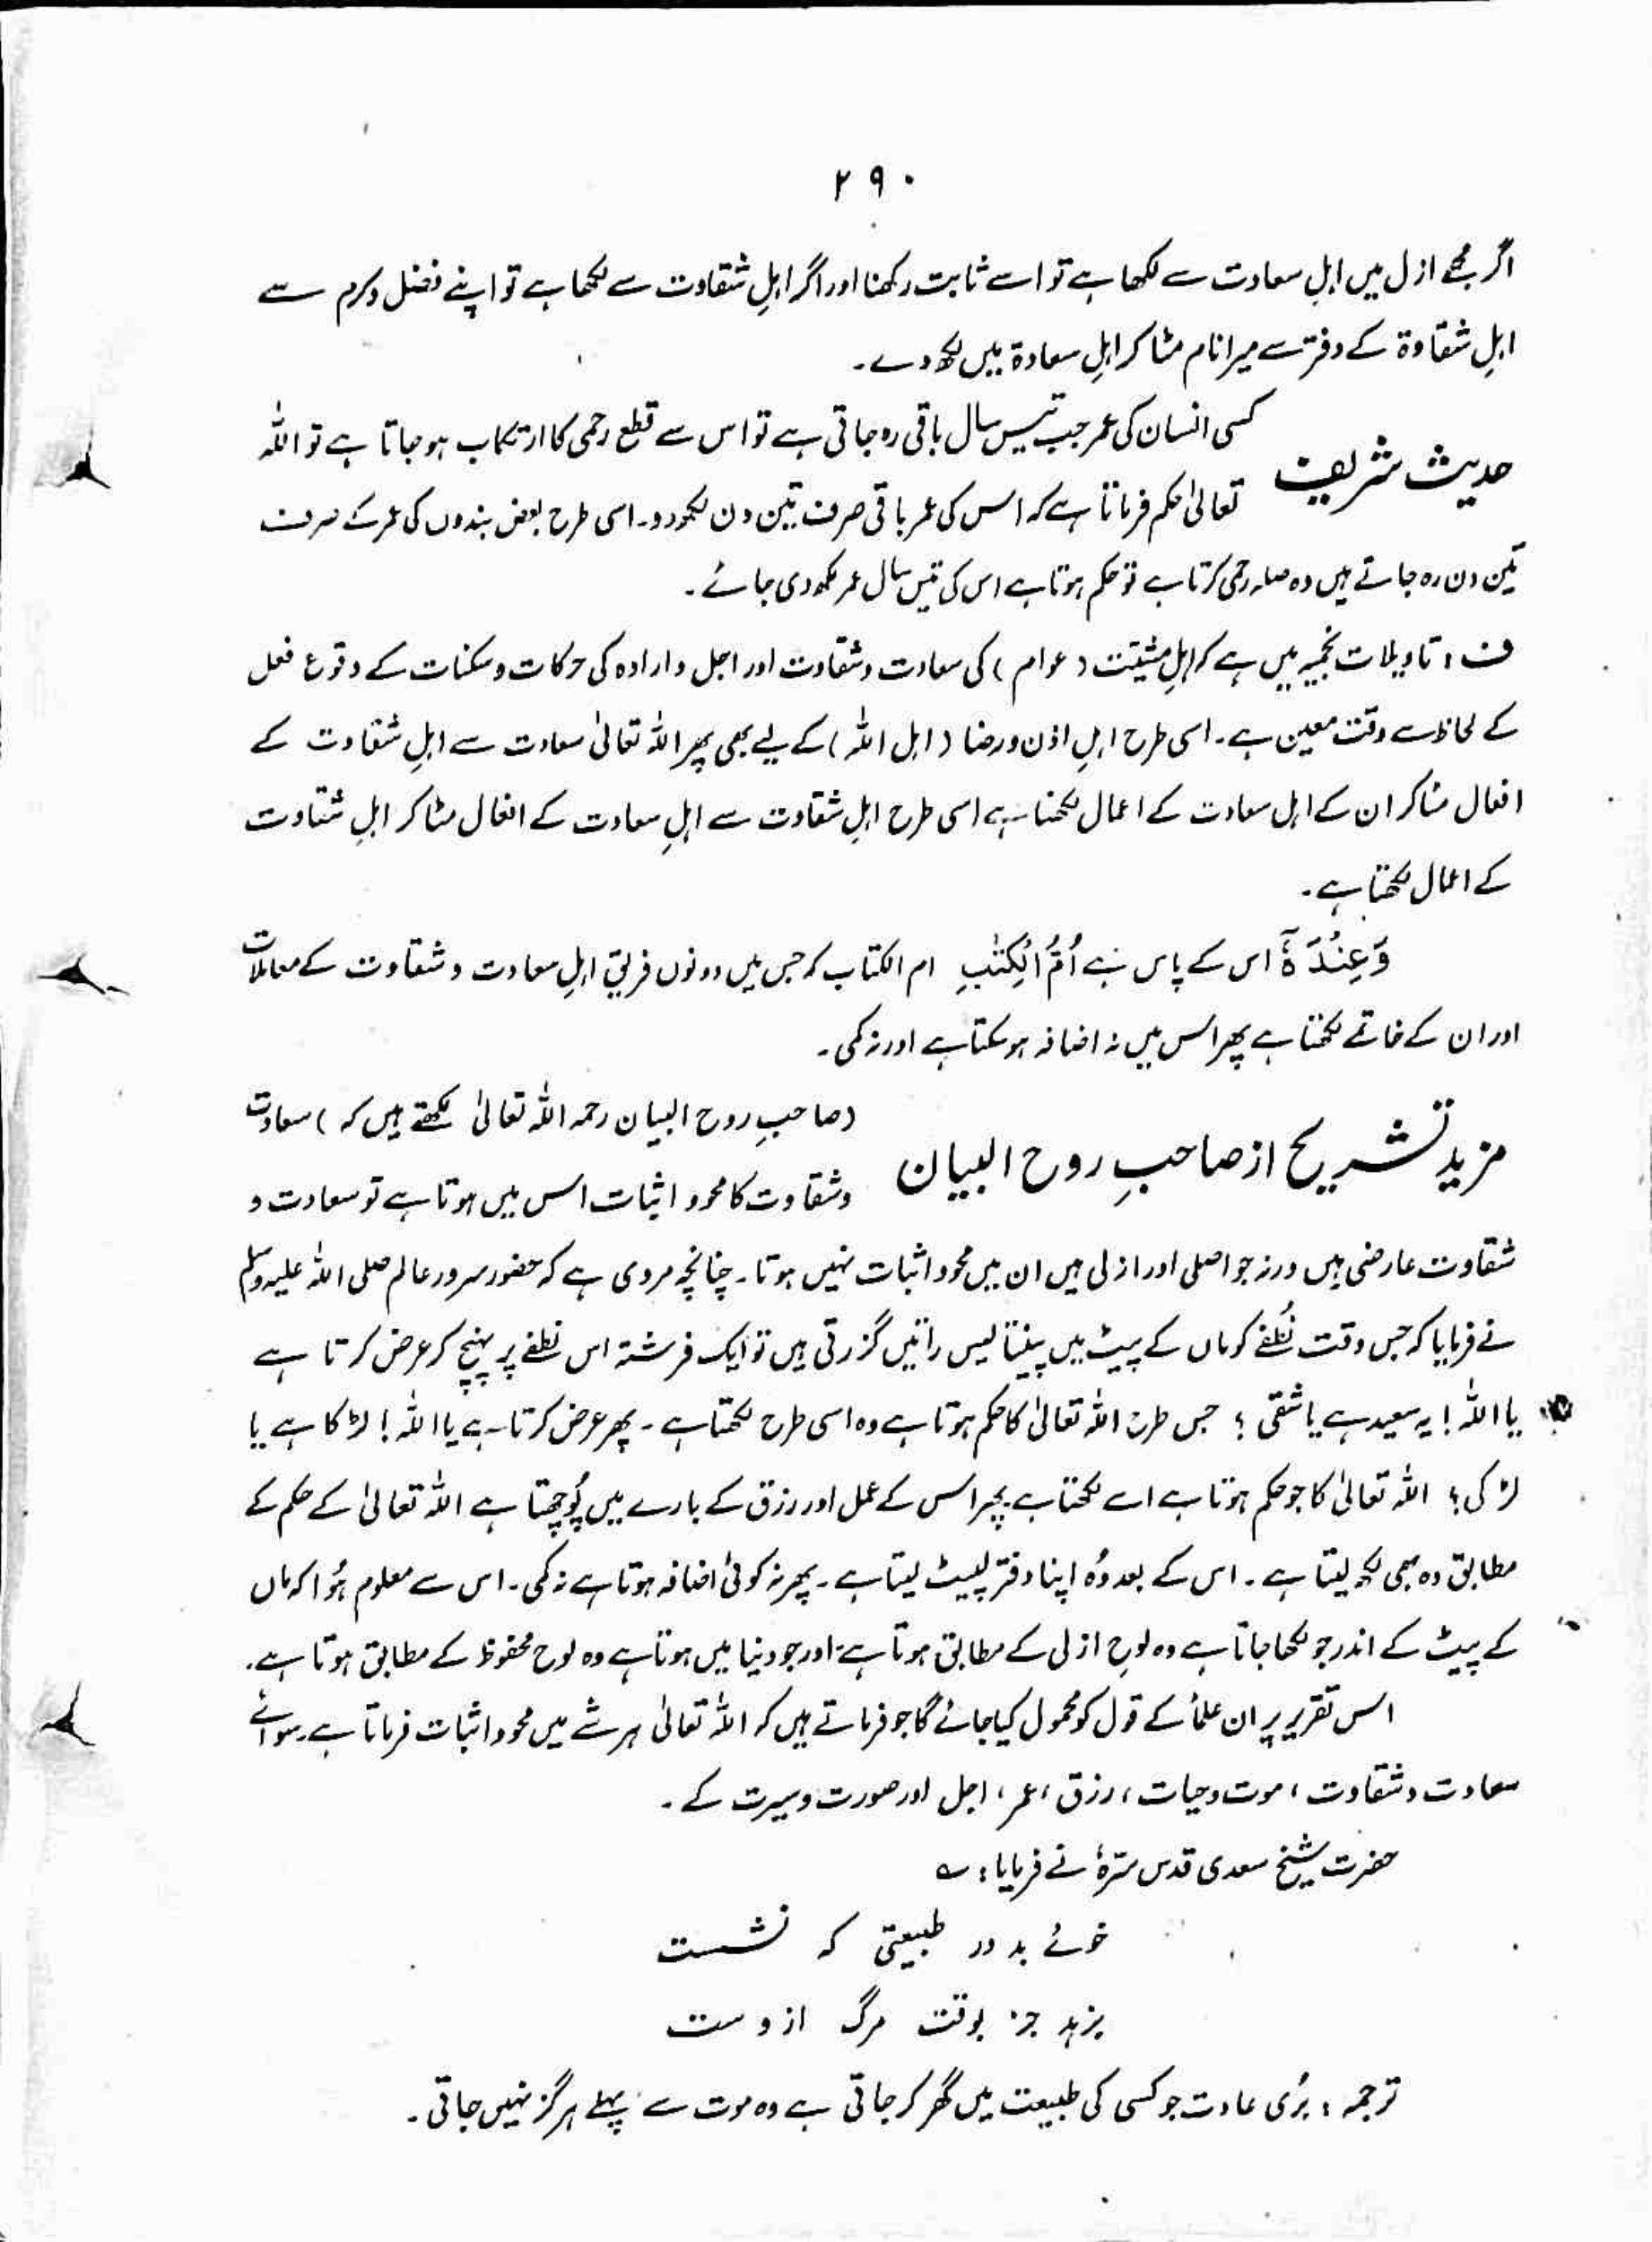 ۲۹۰
اگر مجھے ازل میں اہلِ سعادت سے لکھا ہے تو اسے ثابت رکھنا اور اگر اہلِ شقاوت سے لکھا ہے تو اپنے فضل وکرم سے
اہلِ شقاوۃ کے دفتر سے میرا نام مٹا کر اہلِ سعادۃ میں لکھ دے۔
حدیث شریف
کسی انسان کی عمر جب تیس سال باقی رہ جاتی ہے تو اس سے قطع رحمی کا ارتکاب ہو جاتا ہے تو اللہ
تعالیٰ حکم فرماتا ہے کہ اس کی عمر باقی صرف تین دن لکھ دو۔ اسی طرح بعض بندوں کی عمر کے صرف
تین دن رہ جاتے ہیں وہ صلہ رحمی کرتا ہے تو حکم ہوتا ہے اس کی تیس سال عمر لکھ دی جائے۔
ف : تاویلات نجمیہ میں ہے کہ اہلِ مشیّت (عوام) کی سعادت وشقاوت اور اجل وارادہ کی حرکات وسکنات کے وقوع فعل
کے لحاظ سے وقت معین ہے۔ اسی طرح اہلِ اذن ورضا (اہل اللہ) کے لیے بھی پھر اللہ تعالیٰ سعادت سے اہلِ شقاوت کے
افعال مٹا کر ان کے اہل سعادت کے اعمال لکھتا ہے اسی طرح اہلِ شقاوت سے اہلِ سعادت کے افعال مٹا کر اہلِ شقاوت
کے اعمال لکھتا ہے۔
وَعِنْدَهٗٓ اس کے پاس ہے اُمُّ الْكِتٰبِ ام الکتاب کہ جس میں دونوں فریق اہلِ سعادت وشقاوت کے معاملات
اور ان کے خاتمے لکھتا ہے پھر اس میں نہ اضافہ ہو سکتا ہے اور نہ کمی۔
مزید تشریح از صاحبِ روح البیان
(صاحبِ روح البیان رحمہ اللہ تعالیٰ لکھتے ہیں کہ) سعادت
وشقاوت کا محو و اثبات اس میں ہوتا ہے تو سعادت و
شقاوت عارضی ہیں ورنہ جو اصلی اور ازلی ہیں ان میں محو و اثبات نہیں ہوتا۔ چنانچہ مروی ہے کہ حضور سرور عالم صلی اللہ علیہ وسلم
نے فرمایا کہ جس وقت نُطفے کو ماں کے پیٹ میں پینتالیس راتیں گزرتی ہیں تو ایک فرشتہ اس نطفے پر پہنچ کر عرض کرتا ہے
یا اللہ! یہ سعید ہے یا شقی ؟ جس طرح اللہ تعالیٰ کا حکم ہوتا ہے وہ اسی طرح لکھتا ہے۔ پھر عرض کرتا ہے یا اللہ! لڑکا ہے یا
لڑکی؟ اللہ تعالیٰ کا جو حکم ہوتا ہے اسے لکھتا ہے پھر اس کے عمل اور رزق کے بارے میں پُوچھتا ہے اللہ تعالیٰ کے حکم کے
مطابق وہ بھی لکھ لیتا ہے۔ اس کے بعد وُہ اپنا دفتر لپیٹ لیتا ہے۔ پھر نہ کوئی اضافہ ہوتا ہے نہ کمی۔ اس سے معلوم ہُوا کہ ماں
کے پیٹ کے اندر جو لکھا جاتا ہے وہ لوحِ ازلی کے مطابق ہوتا ہے اور جو دنیا میں ہوتا ہے وہ لوح محفوظ کے مطابق ہوتا ہے۔
اس تقریر پر ان علماء کے قول کو محمول کیا جائے گا جو فرماتے ہیں کہ اللہ تعالیٰ ہر شے میں محو و اثبات فرماتا ہے۔ سوائے
سعادت وشقاوت ، موت وحیات ، رزق ، عمر ، اجل اور صورت وسیرت کے۔
حضرت شیخ سعدی قدس سرّہٗ نے فرمایا : ؎
خوئے بد در طبیعتی کہ نشست
نرہد جز بوقت مرگ از دست
ترجمہ : بُری عادت جو کسی کی طبیعت میں گھر کر جاتی ہے وہ موت سے پہلے ہرگز نہیں جاتی۔